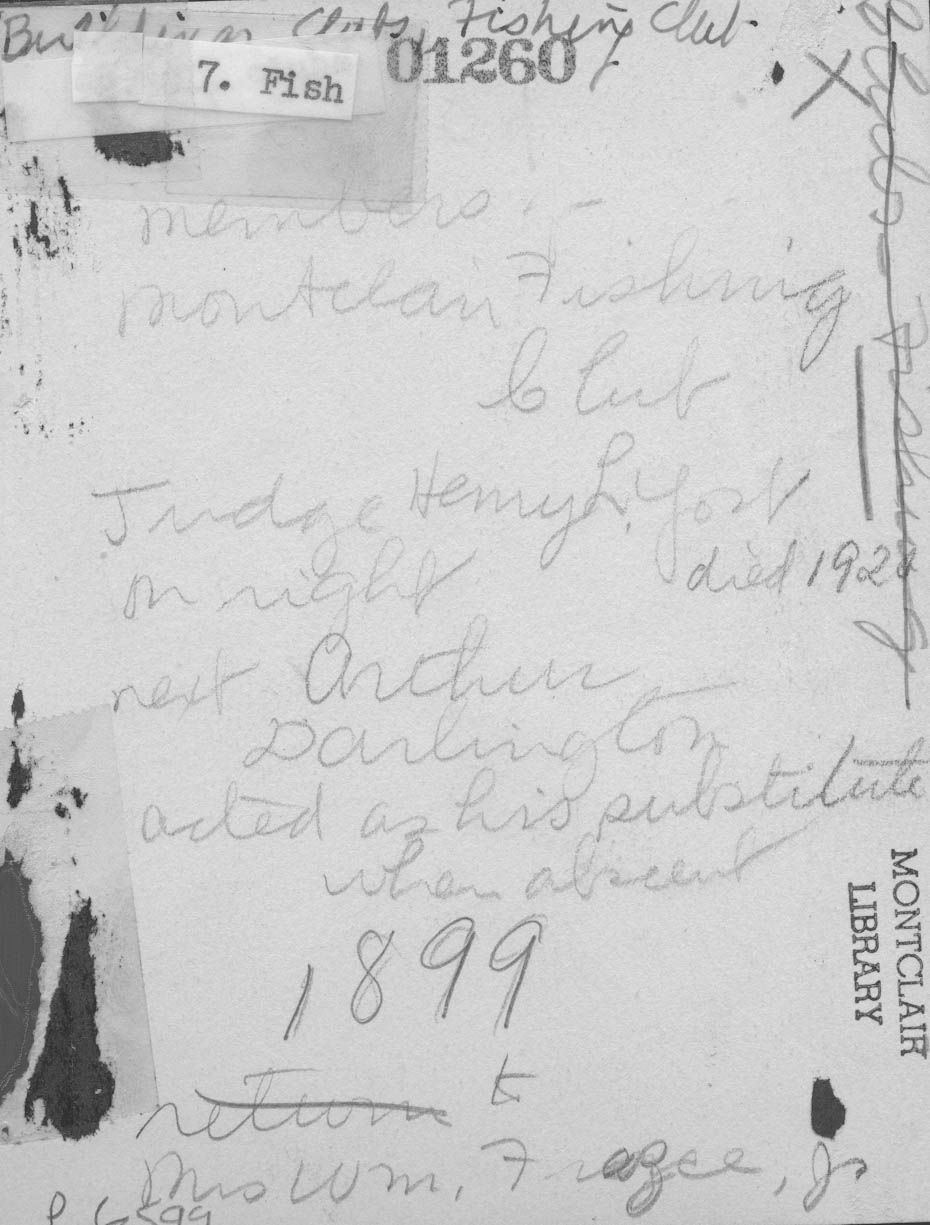 Buildings Clubs, Fishing Club
01260
7. Fish
members -
Montclair Fishing
Club
Judge Henry L. Yost
on right died 192
next Arthur
Darlington
acted as his substitute
when absent
1899
return to
Mrs Wm. Frazee, Jr
Clubs - Fishing
MONTCLAIR
LIBRARY